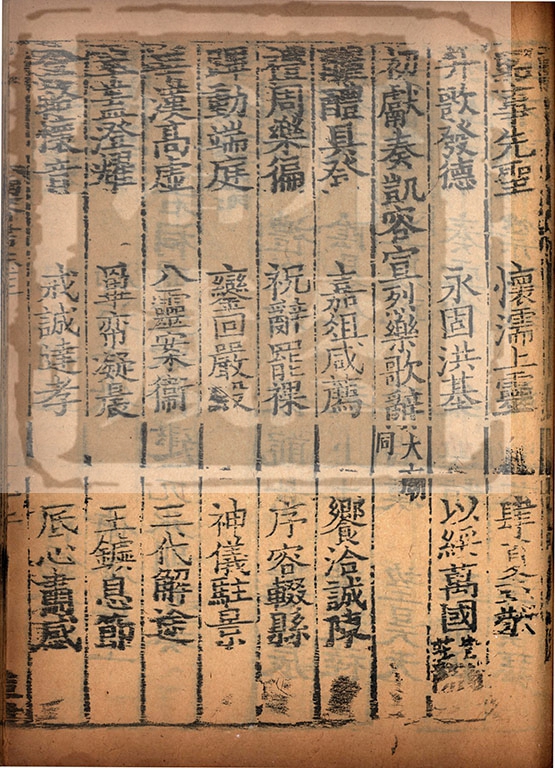 昭事先聖　懷濡上靈　肆夏式敬
升歌發德　永固洪基　以綏萬國
初獻奏凱容宣烈樂歌辭太廟同
醴具登　嘉俎咸薦　饗洽誠陳
禮周樂徧　祝辭罷祼　序容輟縣
蹕動端庭　鑾回嚴殿　神儀駐景
華漢高虛　八靈案衛　三代解途
翠蓋澄耀　罼帟凝晨　玉鑣息節
金輅懷音　戒誠達孝　厎心肅感